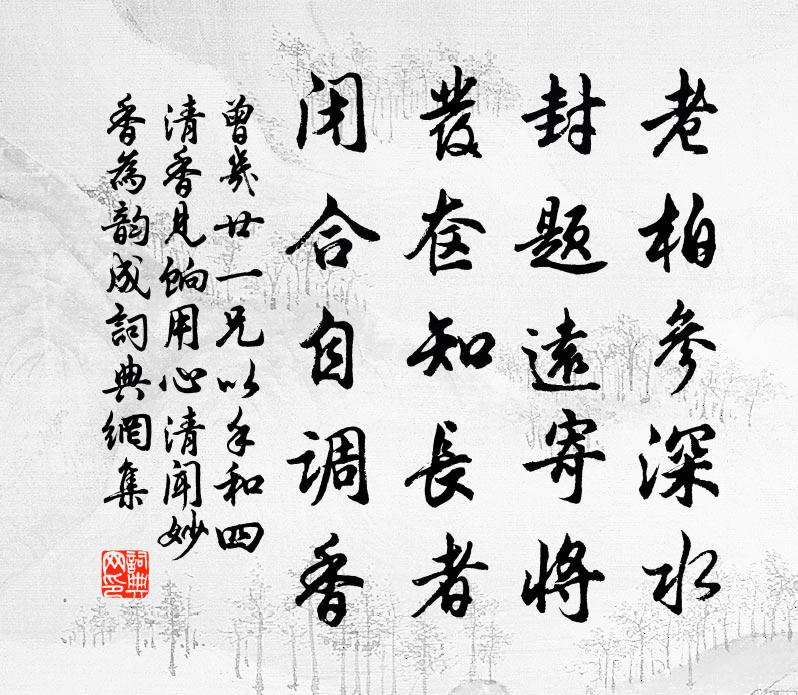 老柏參深水
封题遠寄將
發奁知長者
闭合自调香
曾幾廿一兄以手和四
清香見餉用心清聞妙
香為韵成詞典網集
詞典网印